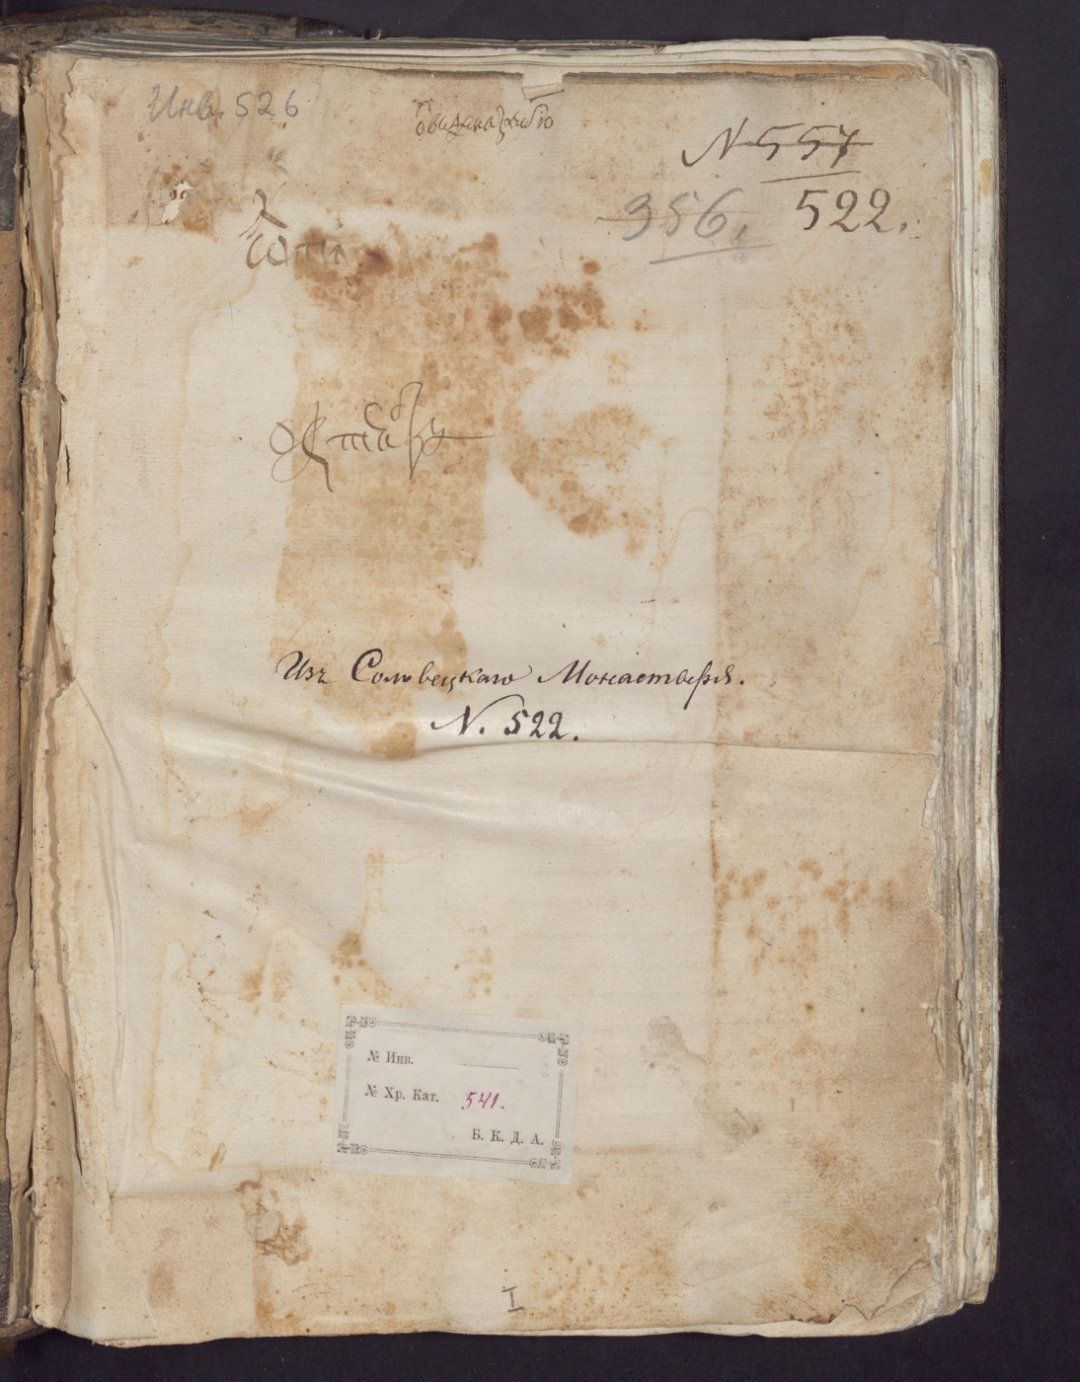 Инв. 526
N 557
356. 522.
Изъ Соловецкаго Монастыря.
N. 522.
№ Инв.
№ Хр. Кат. 541.
Б. К. Д. А.
I